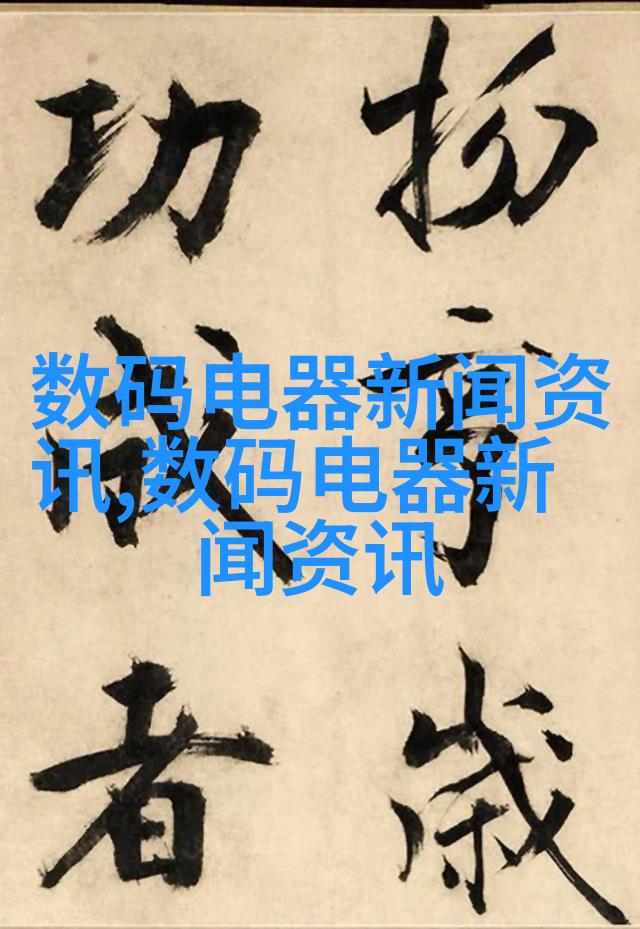 数码电器新闻资
讯,数码电器新
闻资讯
歲
功成者